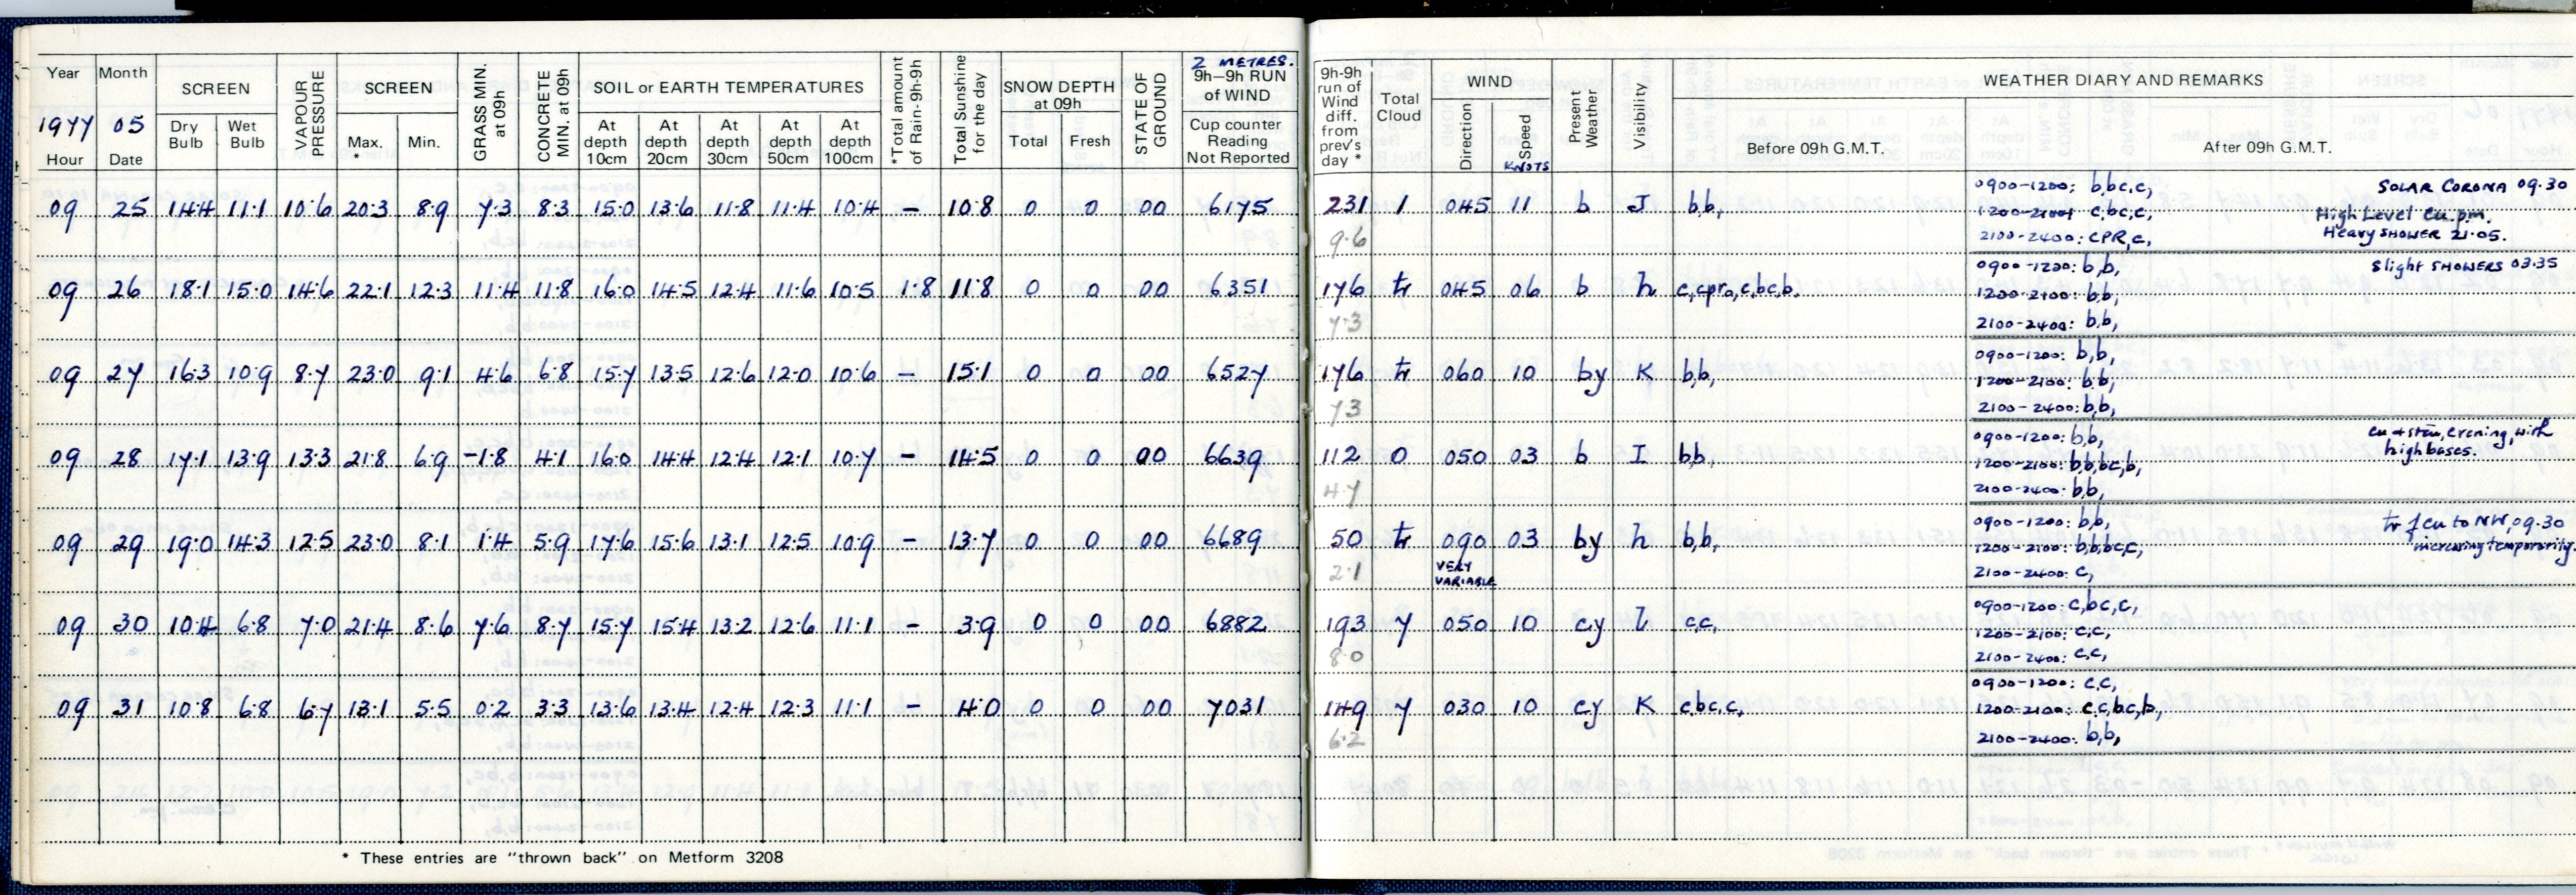 Year Month SCREEN VAPOUR PRESSURE SCREEN GRASS MIN. at 09h CONCRETE MIN. at 09h SOIL or EARTH TEMPERATURES *Total amount of Rain-9h-9h Total Sunshine for the day SNOW DEPTH at 09h STATE OF GROUND 2 METRES. 9h–9h RUN of WIND
1977 05 Dry Bulb Wet Bulb Max. * Min. At depth 10cm At depth 20cm At depth 30cm At depth 50cm At depth 100cm Total Fresh Cup counter Reading Not Reported
Hour Date
9h-9h run of Wind diff. from prev's day * Total Cloud WIND Direction Speed KNOTS Present Weather Visibility WEATHER DIARY AND REMARKS
Before 09h G.M.T. After 09h G.M.T.
09 25 14.4 11.1 10.6 20.3 8.9 7.3 8.3 15.0 13.6 11.8 11.4 10.4 – 10.8 0 0 00 6175 231 1 045 11 b J b,b,
9.6
0900-1200: b,bc,c, SOLAR CORONA 09.30
1200-2100: c,bc,c, High Level Cu. pm.
2100-2400: CPR,c, Heavy SHOWER 21.05.
09 26 18.1 15.0 14.6 22.1 12.3 11.4 11.8 16.0 14.5 12.4 11.6 10.5 1.8 11.8 0 0 00 6351 176 tr 045 06 b h c,cpro,c,bc,b,
7.3
0900-1200: b,b, Slight SHOWERS 03.35
1200-2100: b,b,
2100-2400: b,b,
09 27 16.3 10.9 8.7 23.0 9.1 4.6 6.8 15.7 13.5 12.6 12.0 10.6 – 15.1 0 0 00 6527 176 tr 060 10 by K b,b,
7.3
0900-1200: b,b,
1200-2100: b,b,
2100-2400: b,b,
09 28 17.1 13.9 13.3 21.8 6.9 -1.8 4.1 16.0 14.4 12.4 12.1 10.7 – 14.5 0 0 00 6639 112 0 050 03 b I b,b,
4.7
0900-1200: b,b, evening, with
1200-2100: b,b,bc,b, high bases.
2100-2400: b,b,
09 29 19.0 14.3 12.5 23.0 8.1 1.4 5.9 17.6 15.6 13.1 12.5 10.9 – 13.7 0 0 00 6689 50 tr 090 03 by h b,b,
2.1 VERY VARIABLE
0900-1200: b,b, tr of cu to NW, 09.30
1200-2100: b,b,bc,c, increasing temporarily.
2100-2400: c,
09 30 10.4 6.8 7.0 21.4 8.6 7.6 8.7 15.7 15.4 13.2 12.6 11.1 – 3.9 0 0 00 6882 193 7 050 10 cy l c,c,
8.0
0900-1200: c,bc,c,
1200-2100: c,c,
2100-2400: c,c,
09 31 10.8 6.8 6.7 13.1 5.5 0.2 3.3 13.6 13.4 12.4 12.3 11.1 – 4.0 0 0 00 7031 149 7 030 10 cy K c,bc,c,
6.2
0900-1200: c,c,
1200-2100: c,c,bc,b,
2100-2400: b,b,
* These entries are "thrown back" on Metform 3208